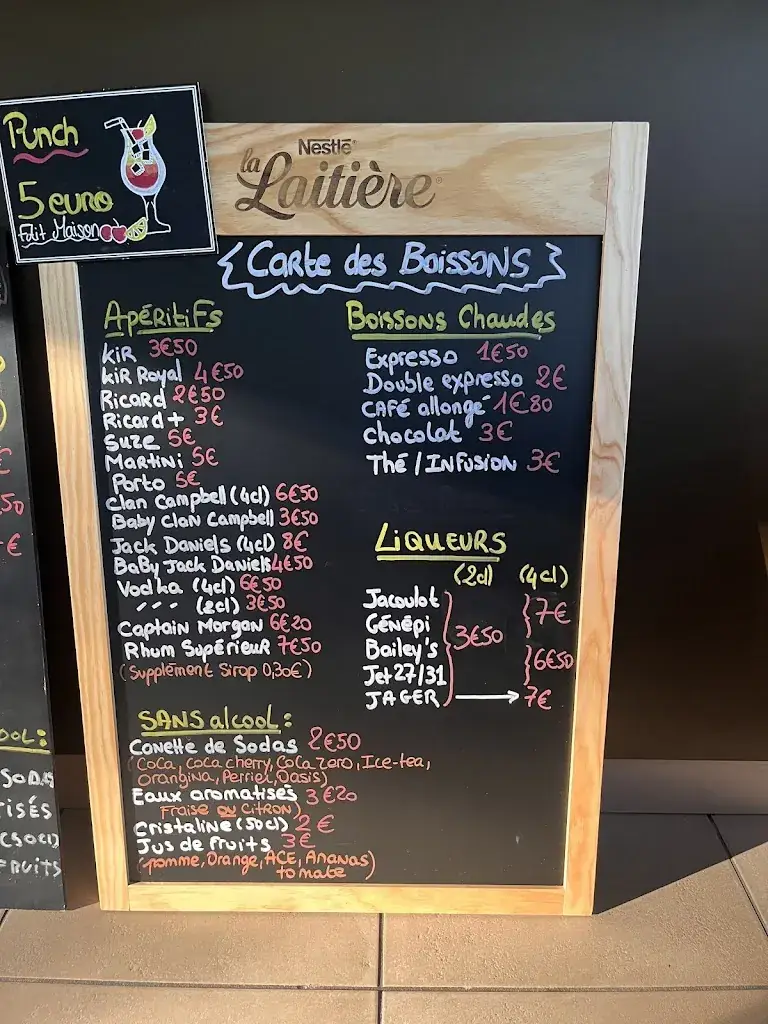 Punch
5 euro
Fait Maison
Nestlé
la Laitière
Carte des Boissons
Apéritifs
Kir 3€50
Kir Royal 4€50
Ricard 2€50
Ricard + 3€
Suze 5€
Martini 5€
Porto 5€
Clan Campbell (4cl) 6€50
Baby Clan Campbell 3€50
Jack Daniels (4cl) 8€
Baby Jack Daniels 4€50
Vodka (4cl) 6€50
〃 (2cl) 3€50
Captain Morgan 6€20
Rhum Supérieur 7€50
(Supplément Sirop 0,30€)
SANS alcool:
Canette de Sodas 2€50
(Coca, Coca cherry, Coca zero, Ice-tea,
Orangina, Perrier, Oasis)
Eaux aromatisés 3€20
Fraise ou Citron)
Cristaline (50cl) 2€
Jus de fruits 3€
(pomme, Orange, ACE, Ananas)
tomate
Boissons Chaudes
Expresso 1€50
Double expresso 2€
CAFÉ allongé 1€80
Chocolat 3€
Thé / INFUSION 3€
LiQUEURS
(2cl) (4cl)
Jacoulot
Génépi
7€
Bailey's
3€50
Jet 27/31
6€50
JAGER → 7€
50
€
OOL:
SODAS
TISÉS
(50cl)
FRUITS